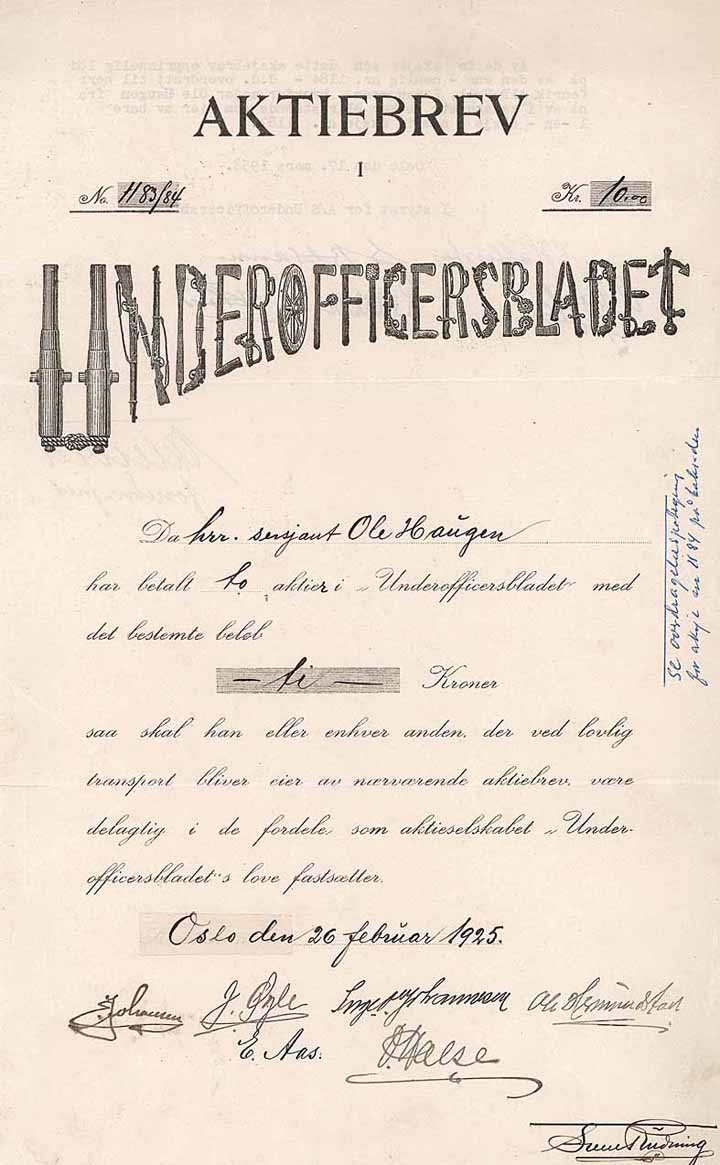 AKTIEBREV
I
No. 1183/84 Kr. 10.00
UNDEROFFICERSBLADET
Da hrr. sersjant Ole Haugen
har betalt to aktier i „Underofficersbladet" med
det bestemte beløb
— ti — Kroner
saa skal han eller enhver anden, der ved lovlig
transport bliver eier av nærværende aktiebrev, være
delagtig i de fordele, som aktieselskabet „Under-
officersbladet"s love fastsætter.
Oslo den 26 februar 1925.
Johansen J. Gyle Johannessen Ole
E. Aas.
Se overdragelsespåtegning
for aksje nr 1184 på baksiden